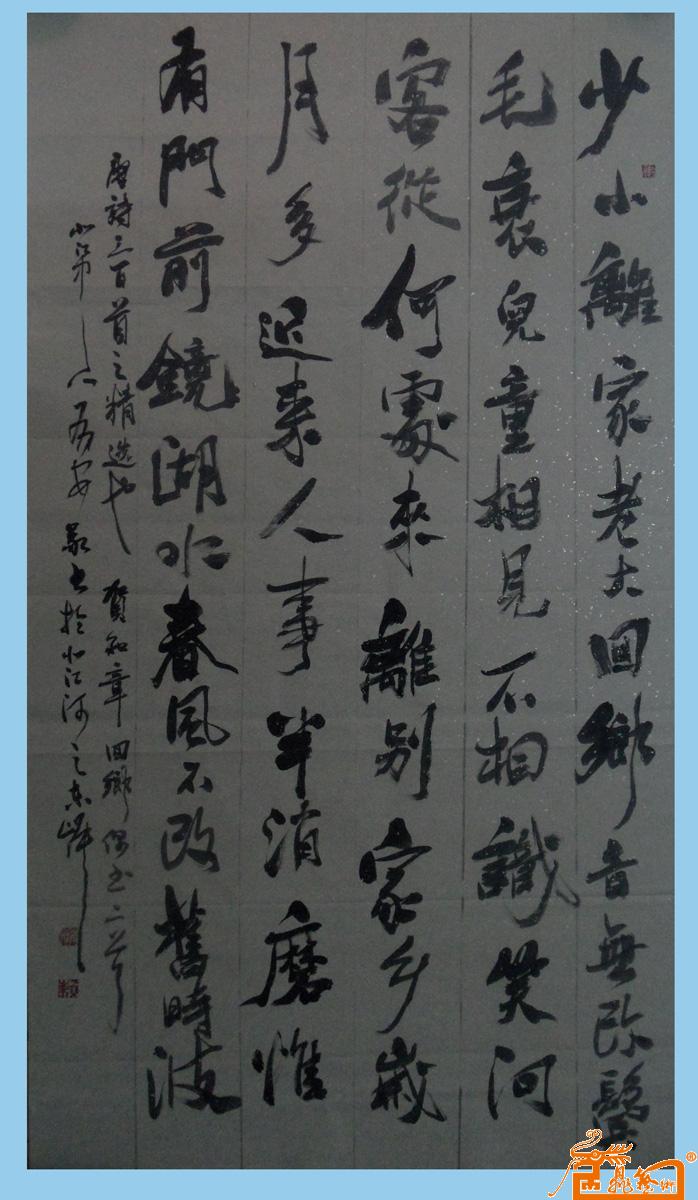 少小離家老大回鄉音無改鬢
毛衰兒童相見不相識笑河
客從何處來離別家乡歲
月多近来人事半消磨惟
有門前鏡湖水春風不改舊時波
唐詩三百首之精选也 賀知章回鄉偶书二首
书於北江河之东